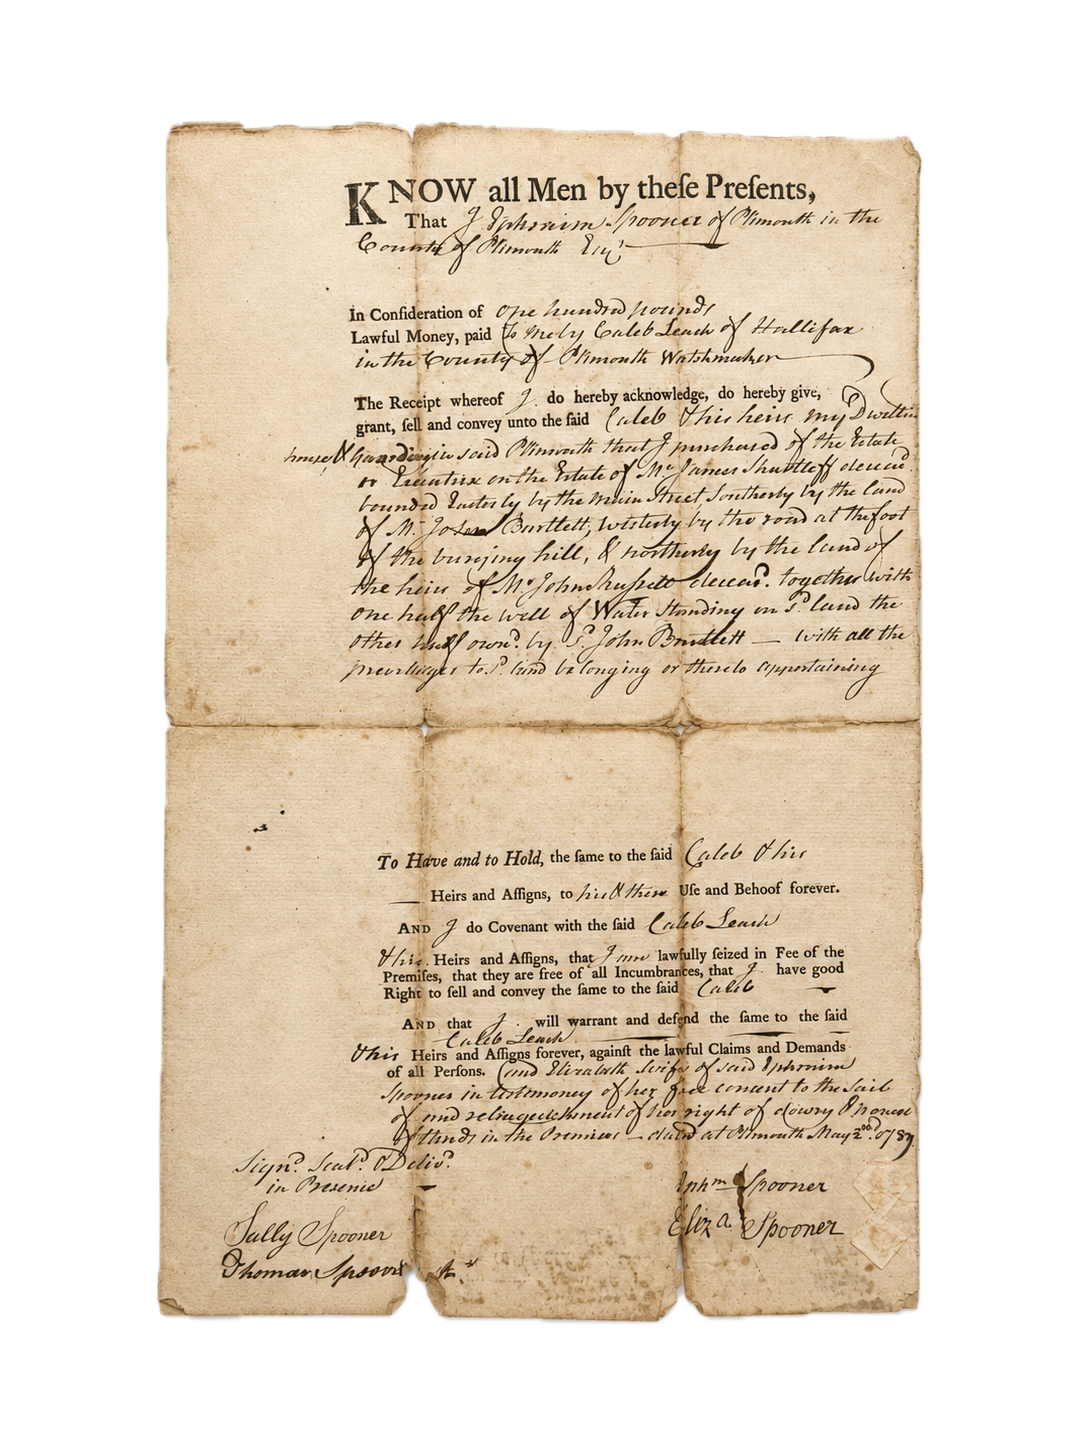 KNOW all Men by theſe Preſents,
That I Ephraim Spooner of Plimouth in the
County of Plimouth Esqr
In Conſideration of one hundred pounds
Lawful Money, paid to me by Caleb Leach of Hallifax
in the County of Plimouth Watchmaker
The Receipt whereof I do hereby acknowledge, do hereby give,
grant, ſell and convey unto the ſaid Caleb & his heirs my Dwelling
house & Garding in said Plimouth that I purchased of the Estate
or Executrix on the Estate of Mr James Shurtleff deceasd
bounded Easterly by the Main Street, Southerly by the land
of Mr Bartlett, westerly by the road at the foot
of the burying hill, & northerly by the land of
the heirs of Mr John Russell deceasd. together with
one half the well of Water Standing on sd. land the
other half ownd. by sd. John Bartlett — with all the
previliages to sd. land belonging or thereto appertaining
To Have and to Hold, the ſame to the ſaid Caleb & his
Heirs and Aſſigns, to his & their Uſe and Behoof forever.
AND I do Covenant with the ſaid Caleb Leach
& his Heirs and Aſſigns, that I am lawfully ſeized in Fee of the
Premiſes, that they are free of all Incumbrances, that I have good
Right to ſell and convey the ſame to the ſaid Caleb
AND that I will warrant and defend the ſame to the ſaid
Caleb Leach
& his Heirs and Aſſigns forever, againſt the lawful Claims and Demands
of all Perſons. and Elizabeth wife of said Ephraim
Spooner in testemoney of her free consent to the sail
of and relinquishment of her right of dowry & power
of thirds in the Premises — dated at Plimouth May 2nd. 1787
Signd. Seald. & Delivd.
in Presence
Ephm Spooner
Eliza Spooner
Sally Spooner
Thomas Spooner